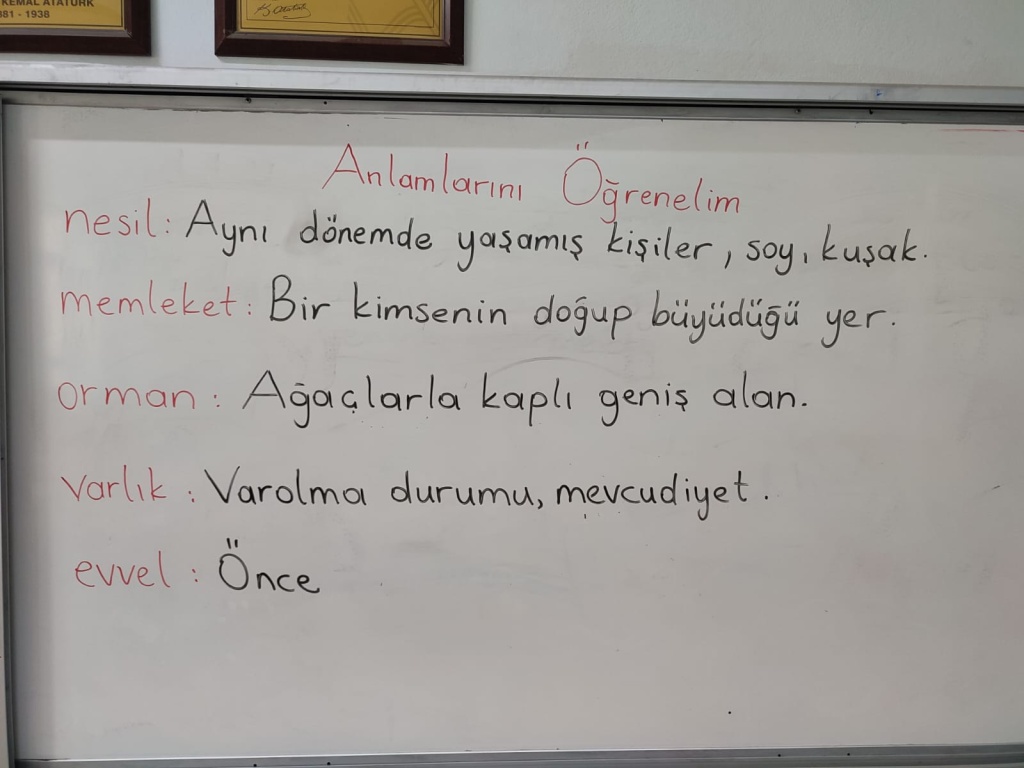 KEMAL ATATÜRK
1881 - 1938
K. Atatürk
Anlamlarını Öğrenelim
nesil: Aynı dönemde yaşamış kişiler, soy, kuşak.
memleket: Bir kimsenin doğup büyüdüğü yer.
orman: Ağaçlarla kaplı geniş alan.
varlık: Varolma durumu, mevcudiyet.
evvel: Önce